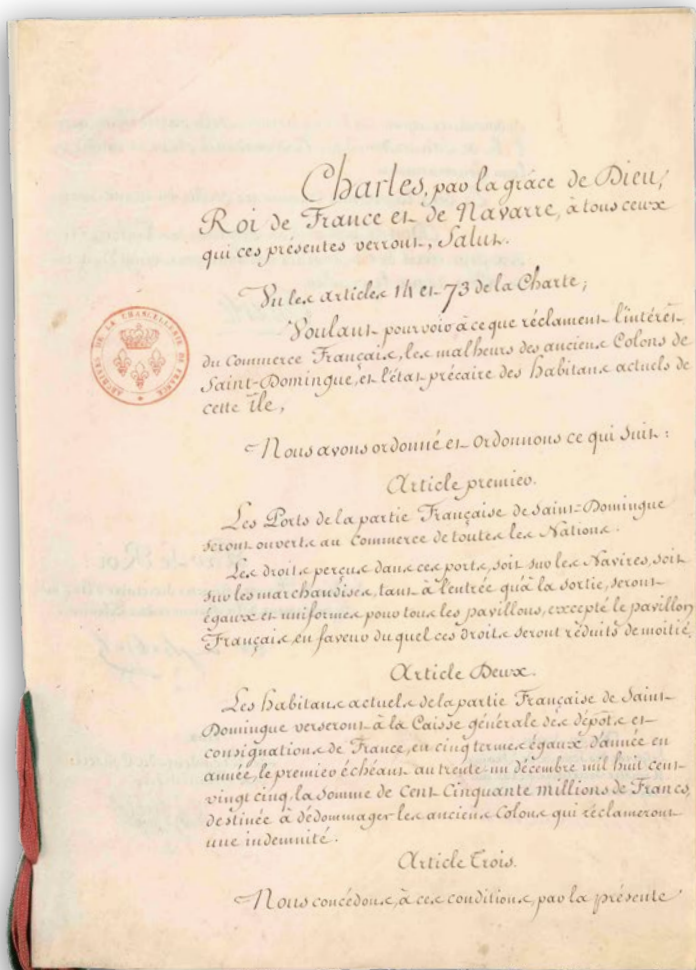 Charles, par la grâce de Dieu,
Roi de France et de Navarre, à tous ceux
qui ces présentes verront, Salut.
Vu les articles 14 et 73 de la Charte;
Voulant pourvoir à ce que réclament l'intérêt
du Commerce Français, les malheurs des anciens Colons de
Saint-Domingue, et l'état précaire des habitans actuels de
cette île,
Nous avons ordonné et ordonnons ce qui suit:
Article premier.
Les Ports de la partie Française de Saint-Domingue
seront ouverts au Commerce de toutes les Nations.
Les droits perçus dans ces ports, soit sur les Navires, soit
sur les marchandises, tant à l'entrée qu'à la sortie, seront
égaux et uniformes pour tous les pavillons, excepté le pavillon
Français, en faveur du quel ces droits seront réduits de moitié.
Article Deux.
Les habitans actuels de la partie Française de Saint-
Domingue verseront à la Caisse générale des dépôts et
consignations de France, en cinq termes égaux d'année en
année, le premier échéant au trente-un décembre mil huit cent
vingt cinq, la somme de Cent Cinquante millions de Francs,
destinée à dédommager les anciens Colons qui réclameront
une indemnité.
Article Trois.
Nous concédons, à ces conditions, par la présente
ARCHIVES DE LA CHANCELLERIE DE FRANCE